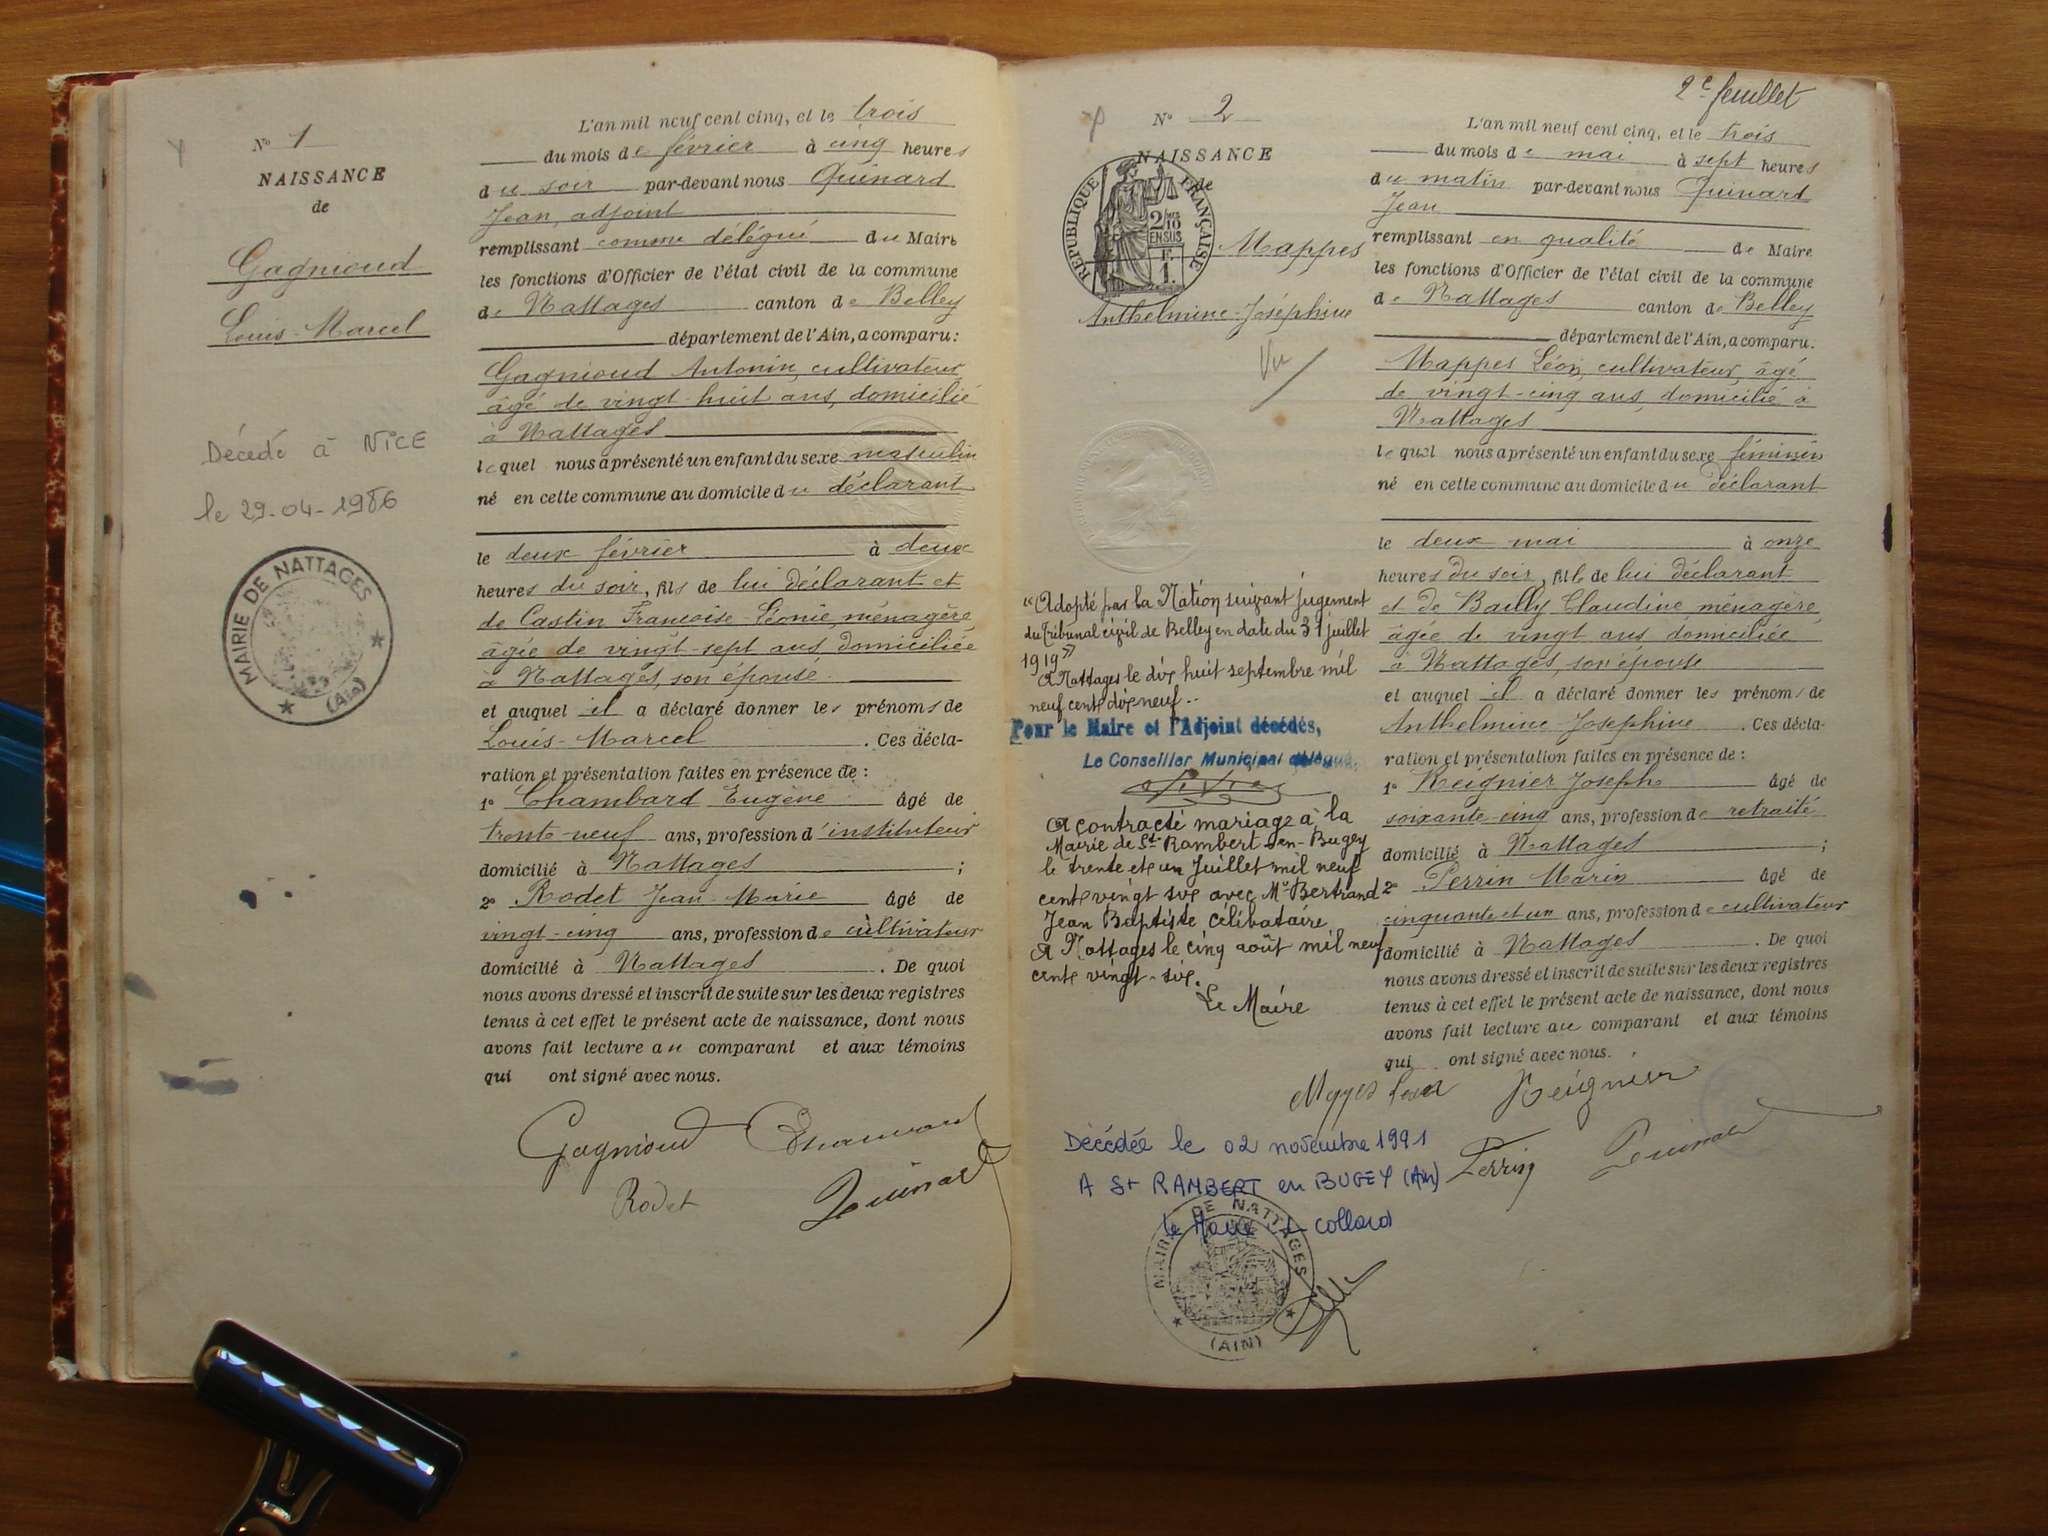 N° 1
NAISSANCE
de
Gagnioud
Louis-Marcel
Décédé à NICE
le 29-04-1986
MAIRIE DE NATTAGES
(Ain)
L'an mil neuf cent cinq, et le trois
du mois de février à cinq heures
du soir par-devant nous Quinard
Jean, adjoint
remplissant comme délégué du Maire
les fonctions d'Officier de l'état civil de la commune
de Nattages canton de Belley
département de l'Ain, a comparu:
Gagnioud Antonin, cultivateur
âgé de vingt-huit ans, domicilié
à Nattages
lequel nous a présenté un enfant du sexe masculin
né en cette commune au domicile du déclarant
le deux février à deux
heures du soir, fils de lui déclarant et
de Castin Françoise-Léonie, ménagère
âgée de vingt-sept ans domiciliée
à Nattages, son épouse.
et auquel il a déclaré donner les prénoms de
Louis-Marcel. Ces décla-
ration et présentation faites en présence de:
1° Chambard Eugène âgé de
trente-neuf ans, profession d'instituteur
domicilié à Nattages;
2° Rodet Jean-Marie âgé de
vingt-cinq ans, profession de cultivateur
domicilié à Nattages. De quoi
nous avons dressé et inscrit de suite sur les deux registres
tenus à cet effet le présent acte de naissance, dont nous
avons fait lecture au comparant et aux témoins
qui ont signé avec nous.
Gagnioud Chambard
Rodet Quinard
2e feuillet
N° 2
NAISSANCE
de
RÉPUBLIQUE FRANÇAISE
2/10 EN SUS
1F.
Mappes
Anthelmine-Joséphine
Vu
"Adopté par la Nation suivant jugement
du Tribunal civil de Belley en date du 31 juillet
1919"
A Nattages le dix huit septembre mil
neuf cent dix neuf..
Pour le Maire et l'Adjoint décédés,
Le Conseiller Municipal délégué,
A contracté mariage à la
Mairie de St-Rambert-en-Bugey
le trente et un Juillet mil neuf
cent vingt six avec Mr Bertrand
Jean Baptiste célibataire
A Nattages le cinq août mil neuf
cent vingt-six.
Le Maire
L'an mil neuf cent cinq, et le trois
du mois de mai à sept heures
du matin par-devant nous Quinard
Jean
remplissant en qualité de Maire
les fonctions d'Officier de l'état civil de la commune
de Nattages canton de Belley
département de l'Ain, a comparu.
Mappes Léon, cultivateur, âgé
de vingt-cinq ans, domicilié à
Nattages
lequel nous a présenté un enfant du sexe féminin
né en cette commune au domicile du déclarant
le deux mai à onze
heures du soir, fille de lui déclarant
et de Bailly Claudine ménagère
âgée de vingt ans, domiciliée
à Nattages, son épouse
et auquel il a déclaré donner les prénoms de
Anthelmine-Joséphine. Ces décla-
ration et présentation faites en présence de:
1° Reignier Joseph âgé de
soixante-cinq ans, profession de retraité
domicilié à Nattages;
2° Perrin Marin âgé de
cinquante et un ans, profession de cultivateur
domicilié à Nattages. De quoi
nous avons dressé et inscrit de suite sur les deux registres
tenus à cet effet le présent acte de naissance, dont nous
avons fait lecture au comparant et aux témoins
qui ont signé avec nous.
Mappes Léon Reignier
Perrin Quinard
Décédée le 02 novembre 1991
A St RAMBERT en BUGEY (Ain)
le Maire L Collard
MAIRIE DE NATTAGES
(AIN)